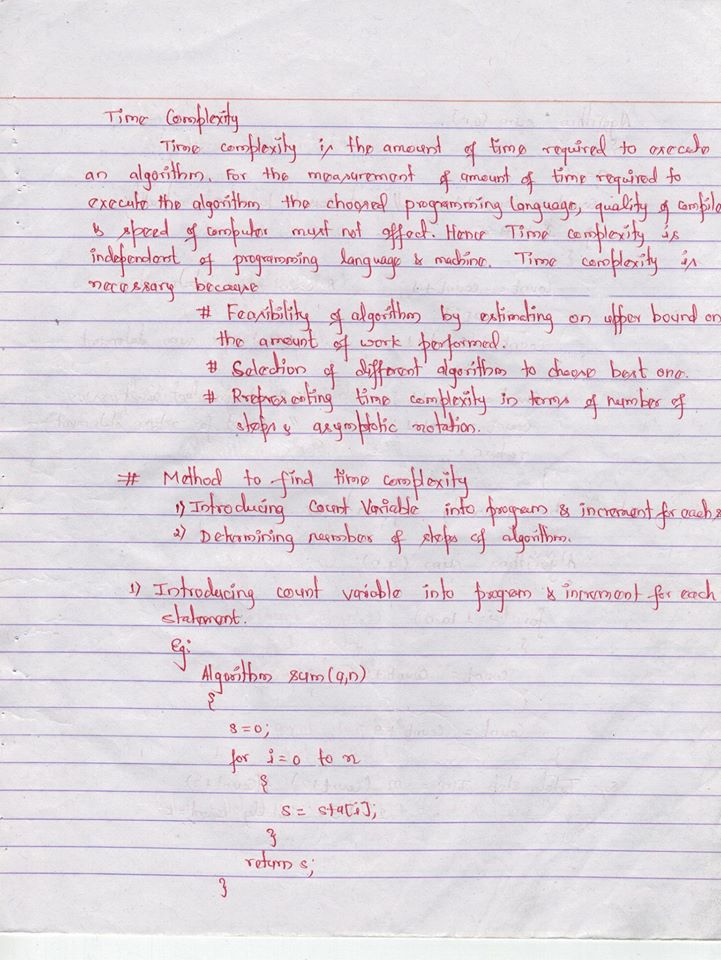 Time Complexity
Time complexity is the amount of time required to execute
an algorithm. For the measurement of amount of time required to
execute the algorithm the choosed programming language, quality of compile
& speed of computer must not affect. Hence Time complexity is
independent of programming language & machine. Time complexity is
necessary because
# Feasibility of algorithm by estimating on upper bound on
the amount of work performed.
# Selection of different algorithm to choose best one.
# Rrepresenting time complexity in terms of number of
steps & asymptotic notation.
# Method to find time complexity
1) Introducing count variable into program & increment for each s
2) Determining number of steps of algorithm.
1) Introducing count variable into program & increment for each
statement.
Eg:
Algorithm sum(a,n)
{
s=0;
for i=0 to n
{
s = s+a[i];
}
return s;
}